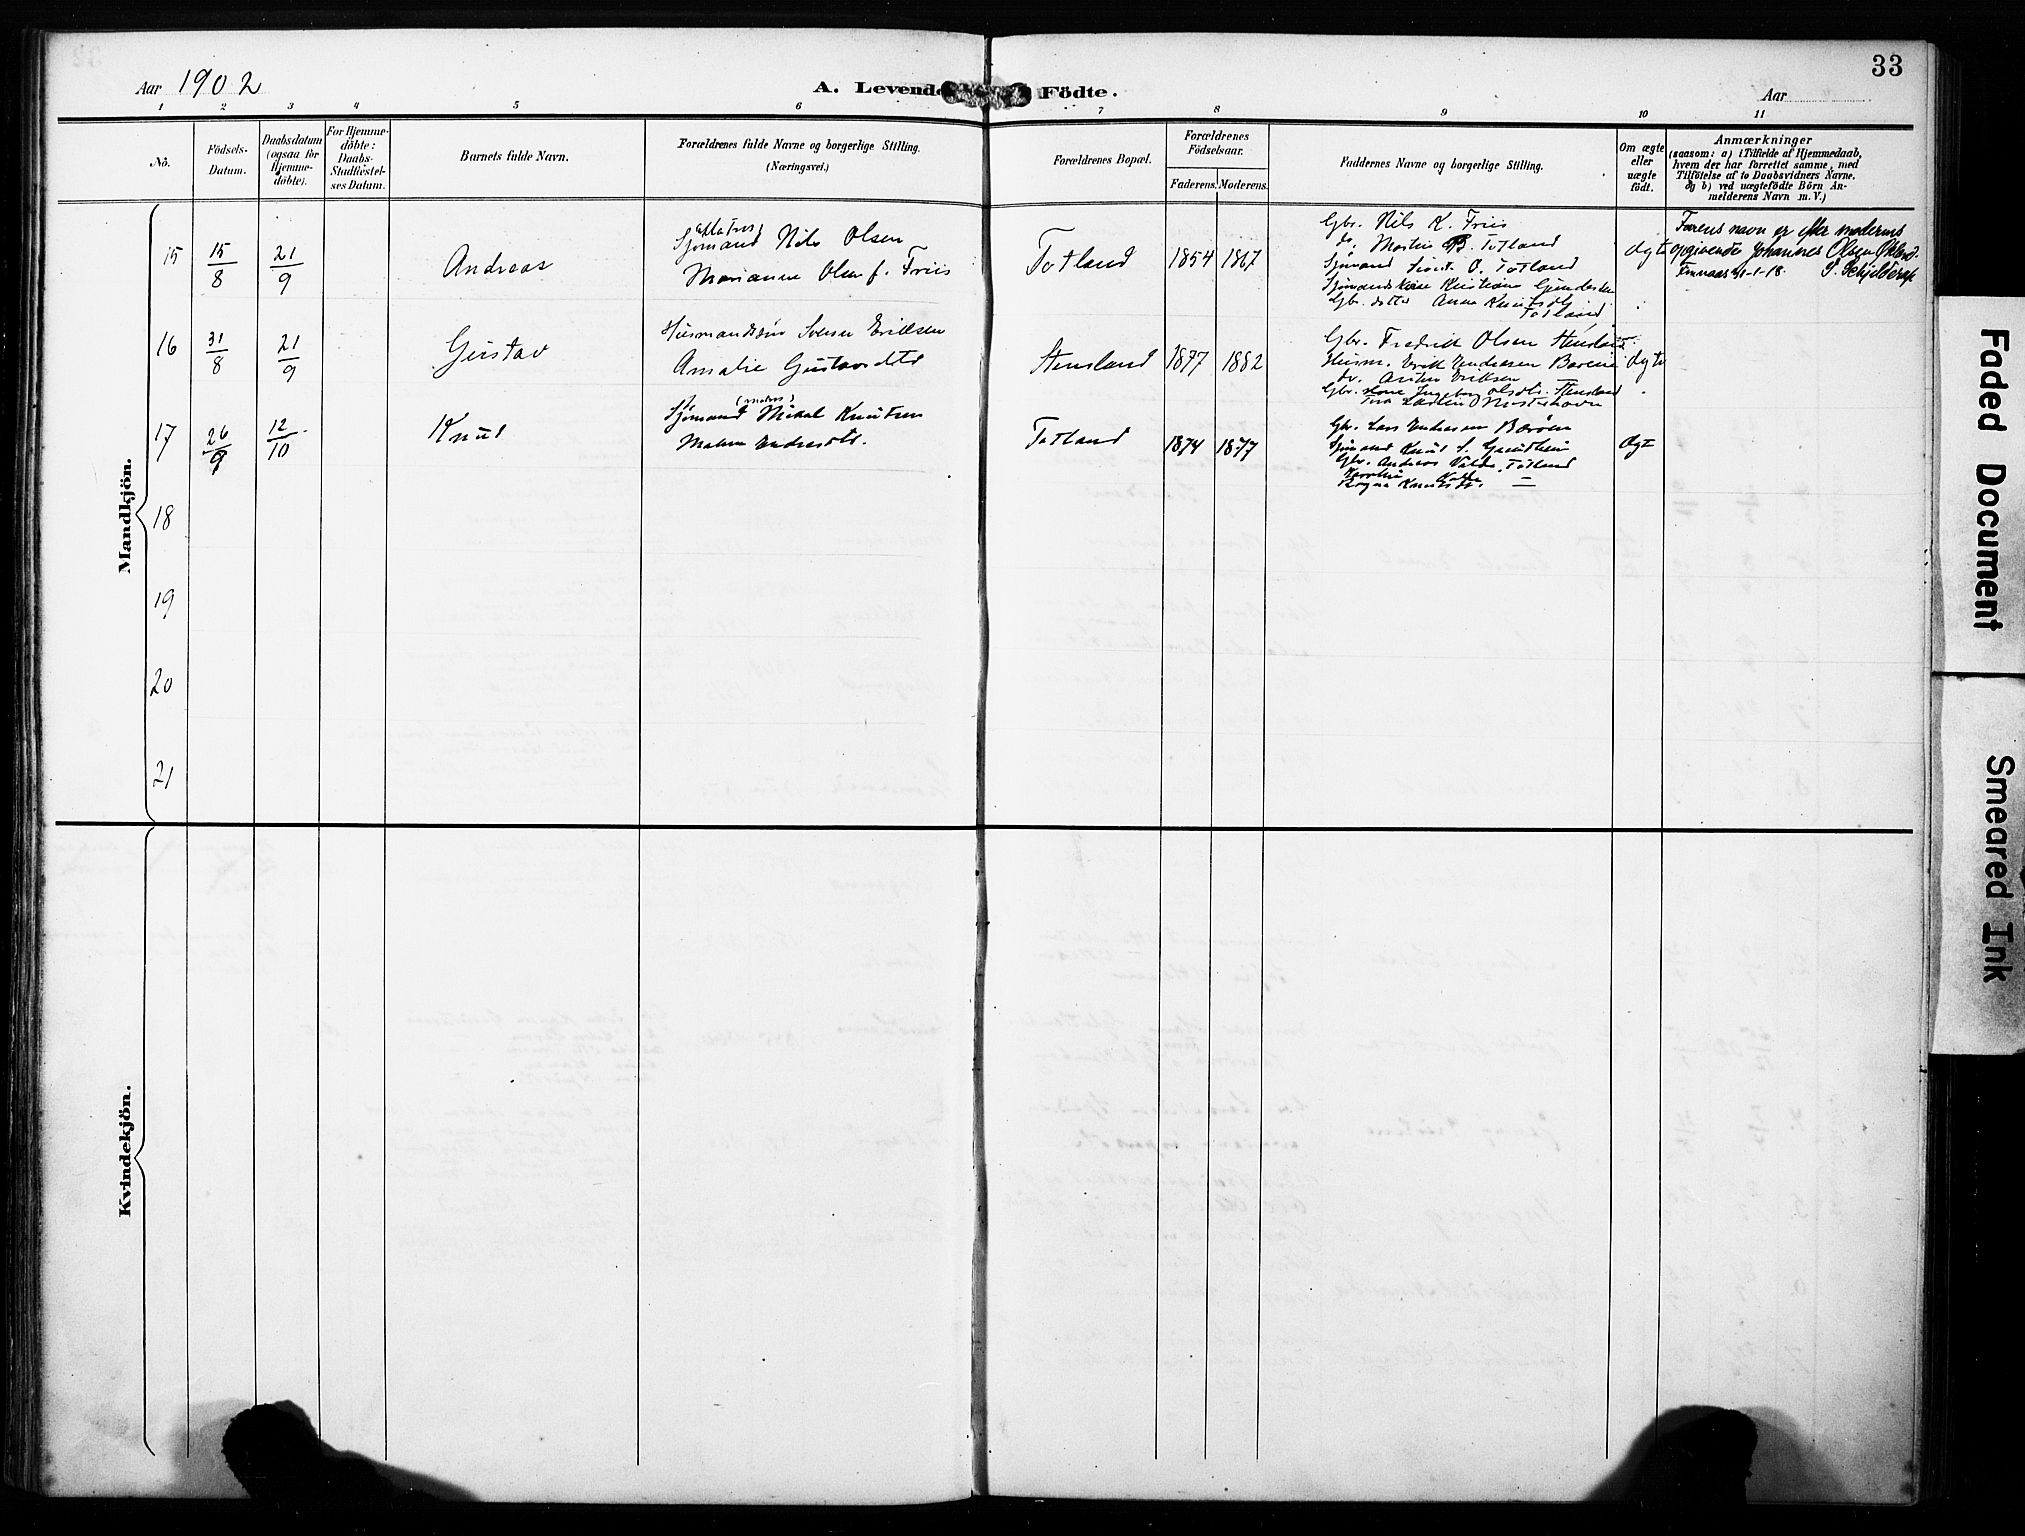 33
Aar 1902
A. Levende Födte.
Aar
1 2 3 4 5 6 7 8 9 10 11
Nô.
Födsels-
Datum.
Daabsdatum
(ogsaa for
Hjemme-
döbte).
For Hjemme-
döbte:
Daabs-
Stadfæstel-
ses Datum.
Barnets fulde Navn.
Forældrenes fulde Navne og borgerlige Stilling.
(Næringsvei.)
Forældrenes Bopæl.
Forældrenes
Födselsaar.
Faderens. Moderens.
Faddernes Navne og borgerlige Stilling.
Om ægte
eller
uægte
födt.
Anmærkninger
(saasom: a) i Tilfælde af Hjemmedaab,
hvem der har forrettet samme, med
Tilföielse af to Daabsvidners Navne.
og b) ved uægtefödte Börn An-
melderens Navn m. V.)
Mandkjön.
15 15/8 21/9 Andreas
Sjömand Nils Olsen
Marianne Olsen f. Friis
Totland 1854 1867
Gbr. Nils K. Friis
do. Martin B. Totland
Sjömand Sivert O. Totland
Sjömandskone Kristiane
Gbr. datter Anna Knutsdtr
Totland
Ægte
Farens navn er efter moderens
opgivende Johannes Olsen
Finnaas 21-1-18. Schjelderup
16 31/8 21/9 Gustav
Husmandssön Svein Eriksen
Amalie Gustavsdtr
Stensland 1877 1882
Gbr. Fredrik Olsen Stensland
Husm. Erik Endresen
do. Eriksen
Gbr. kone Ingeborg Olsdtr. Stensland
Ægte
17 26/9 12/10 Knut
Sjömand Mikal Knutsen
Malene Endresdtr.
Totland 1874 1877
Gbr. Lars Endresen
Sjömand Knut S.
Gbr. Andreas Totland
Knutsdtr. —
Ægte
18
19
20
21
Kvindekjön.
Faded Document
Smeared Ink